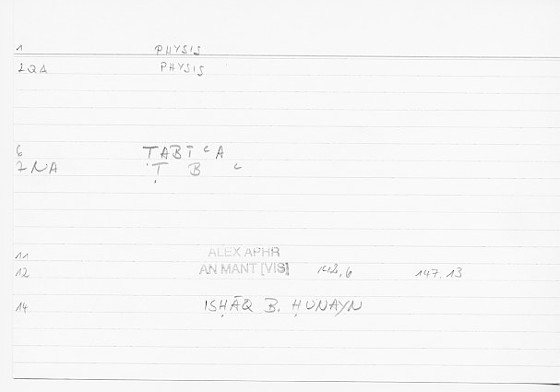 1 PHYSIS
2QA PHYSIS
6 ṬABĪʿA
7NA Ṭ B ʿ
11 ALEX APHR
12 AN MANT [VIS] 6 147.13
14 ISḤĀQ B. ḤUNAYN